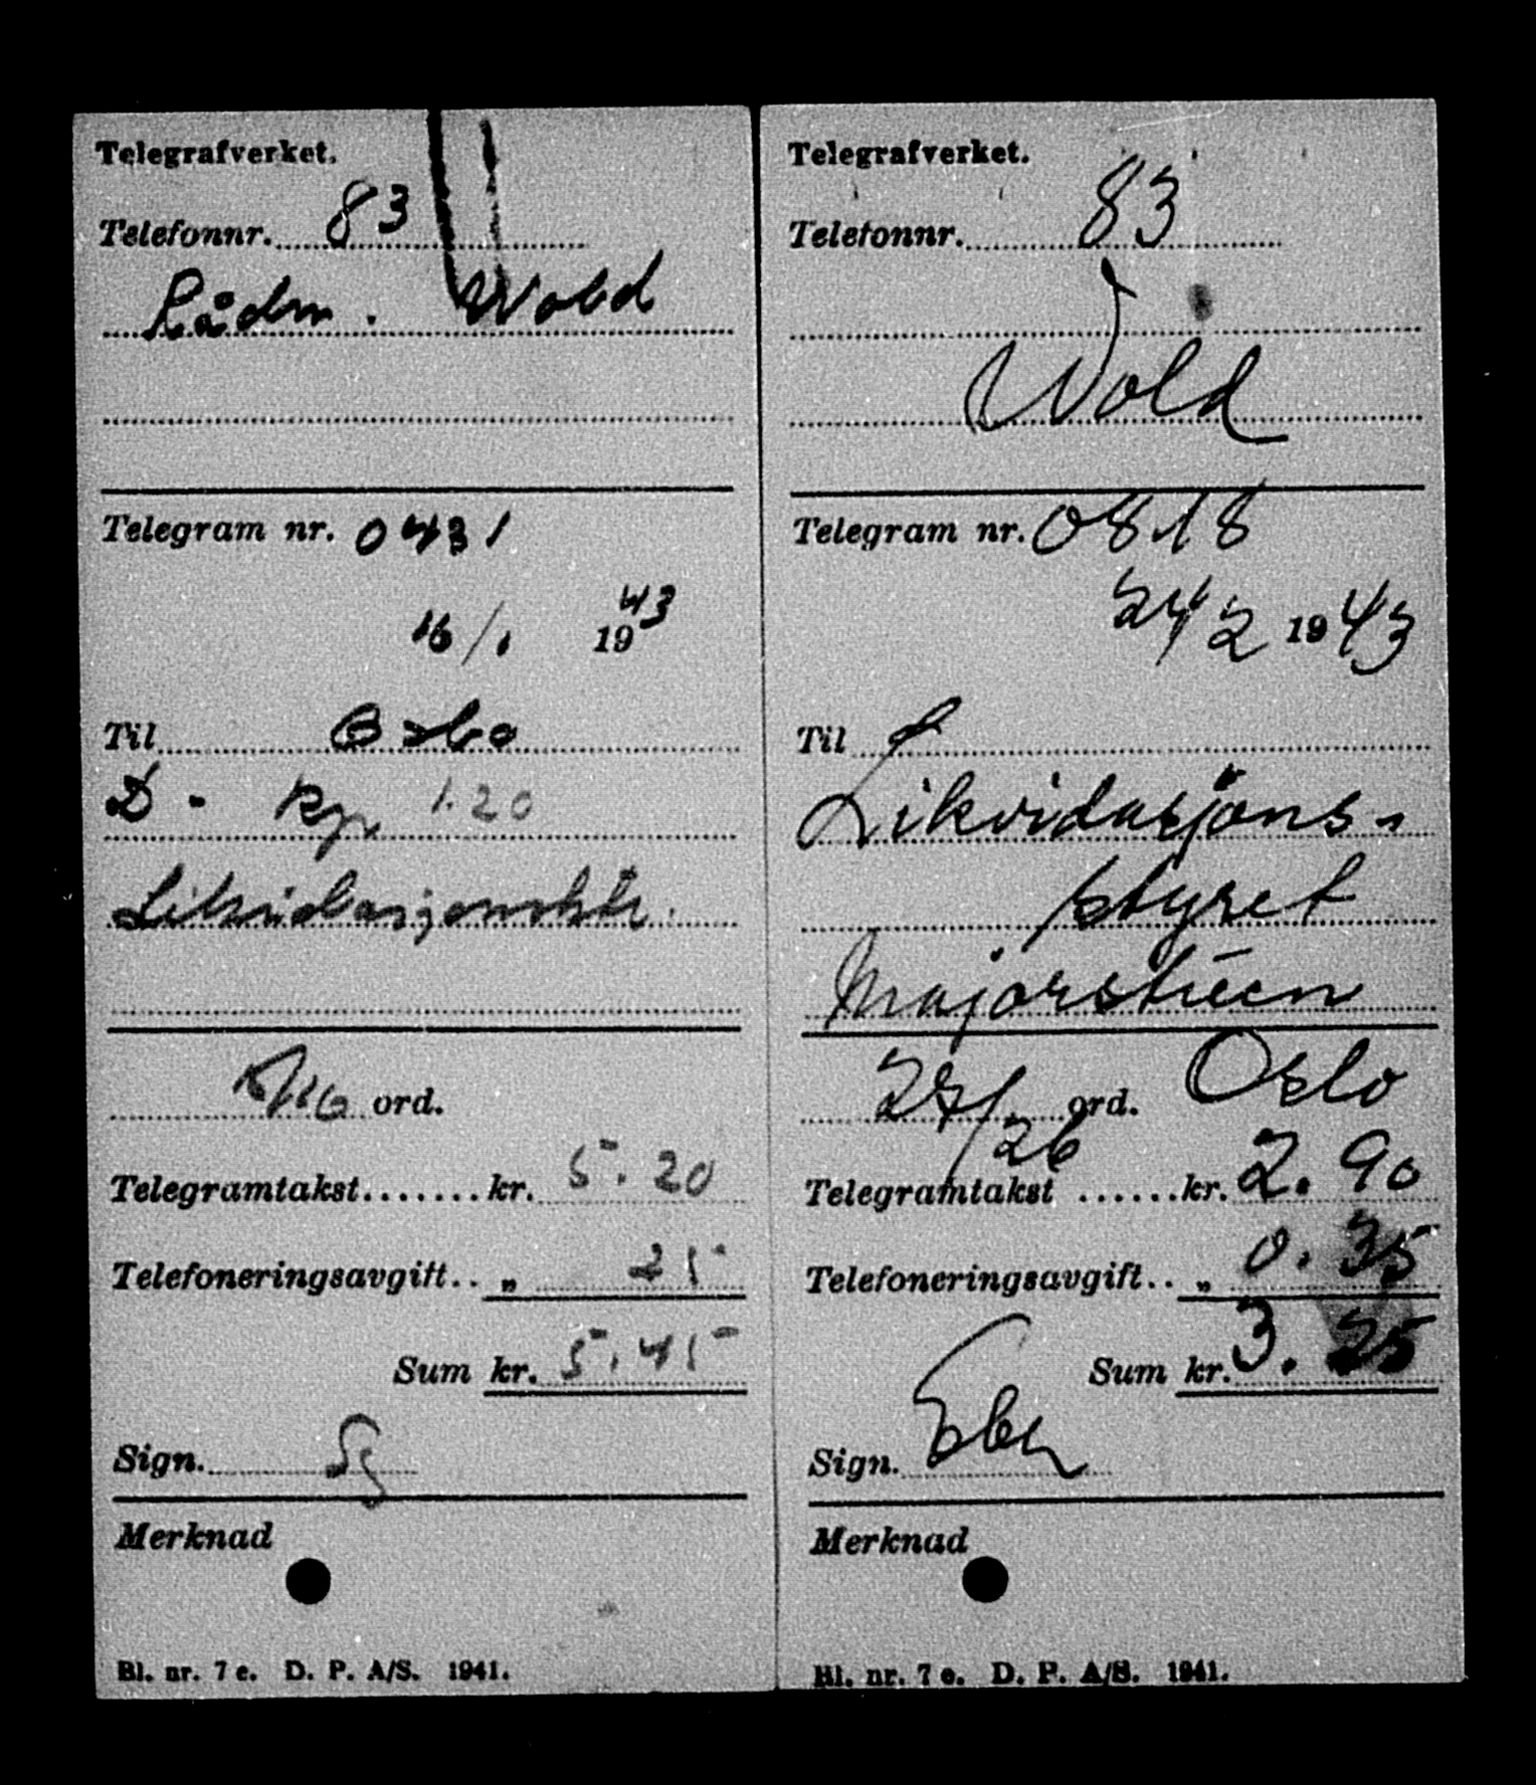 Telegrafverket.
Telefonnr. 83
Rådm. Wold
Telegram nr. 0431
16/1 1943
Til Oslo
D - Rp 1.20
Likvidasjonssty.
ord.
Telegramtakst.......kr. 5.20
Telefoneringsavgift.. „ 25
Sum kr. 5.45
Sign.
Merknad
Bl. nr. 7 e. D. P. A/S. 1941.
Telegrafverket.
Telefonnr. 83
Wold
Telegram nr. 0818
24/2 1943
Til
Likvidasjons-
styret
Majorstuen
ord. Oslo
26
Telegramtakst ......kr. 2.90
Telefoneringsavgift.. „ 0.35
Sum kr. 3.25
Sign.
Merknad
Bl. nr. 7 e. D. P. A/S. 1941.